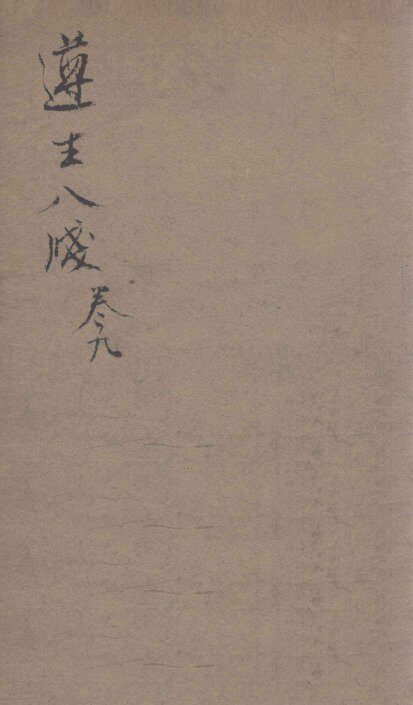 遵生八牋
卷九